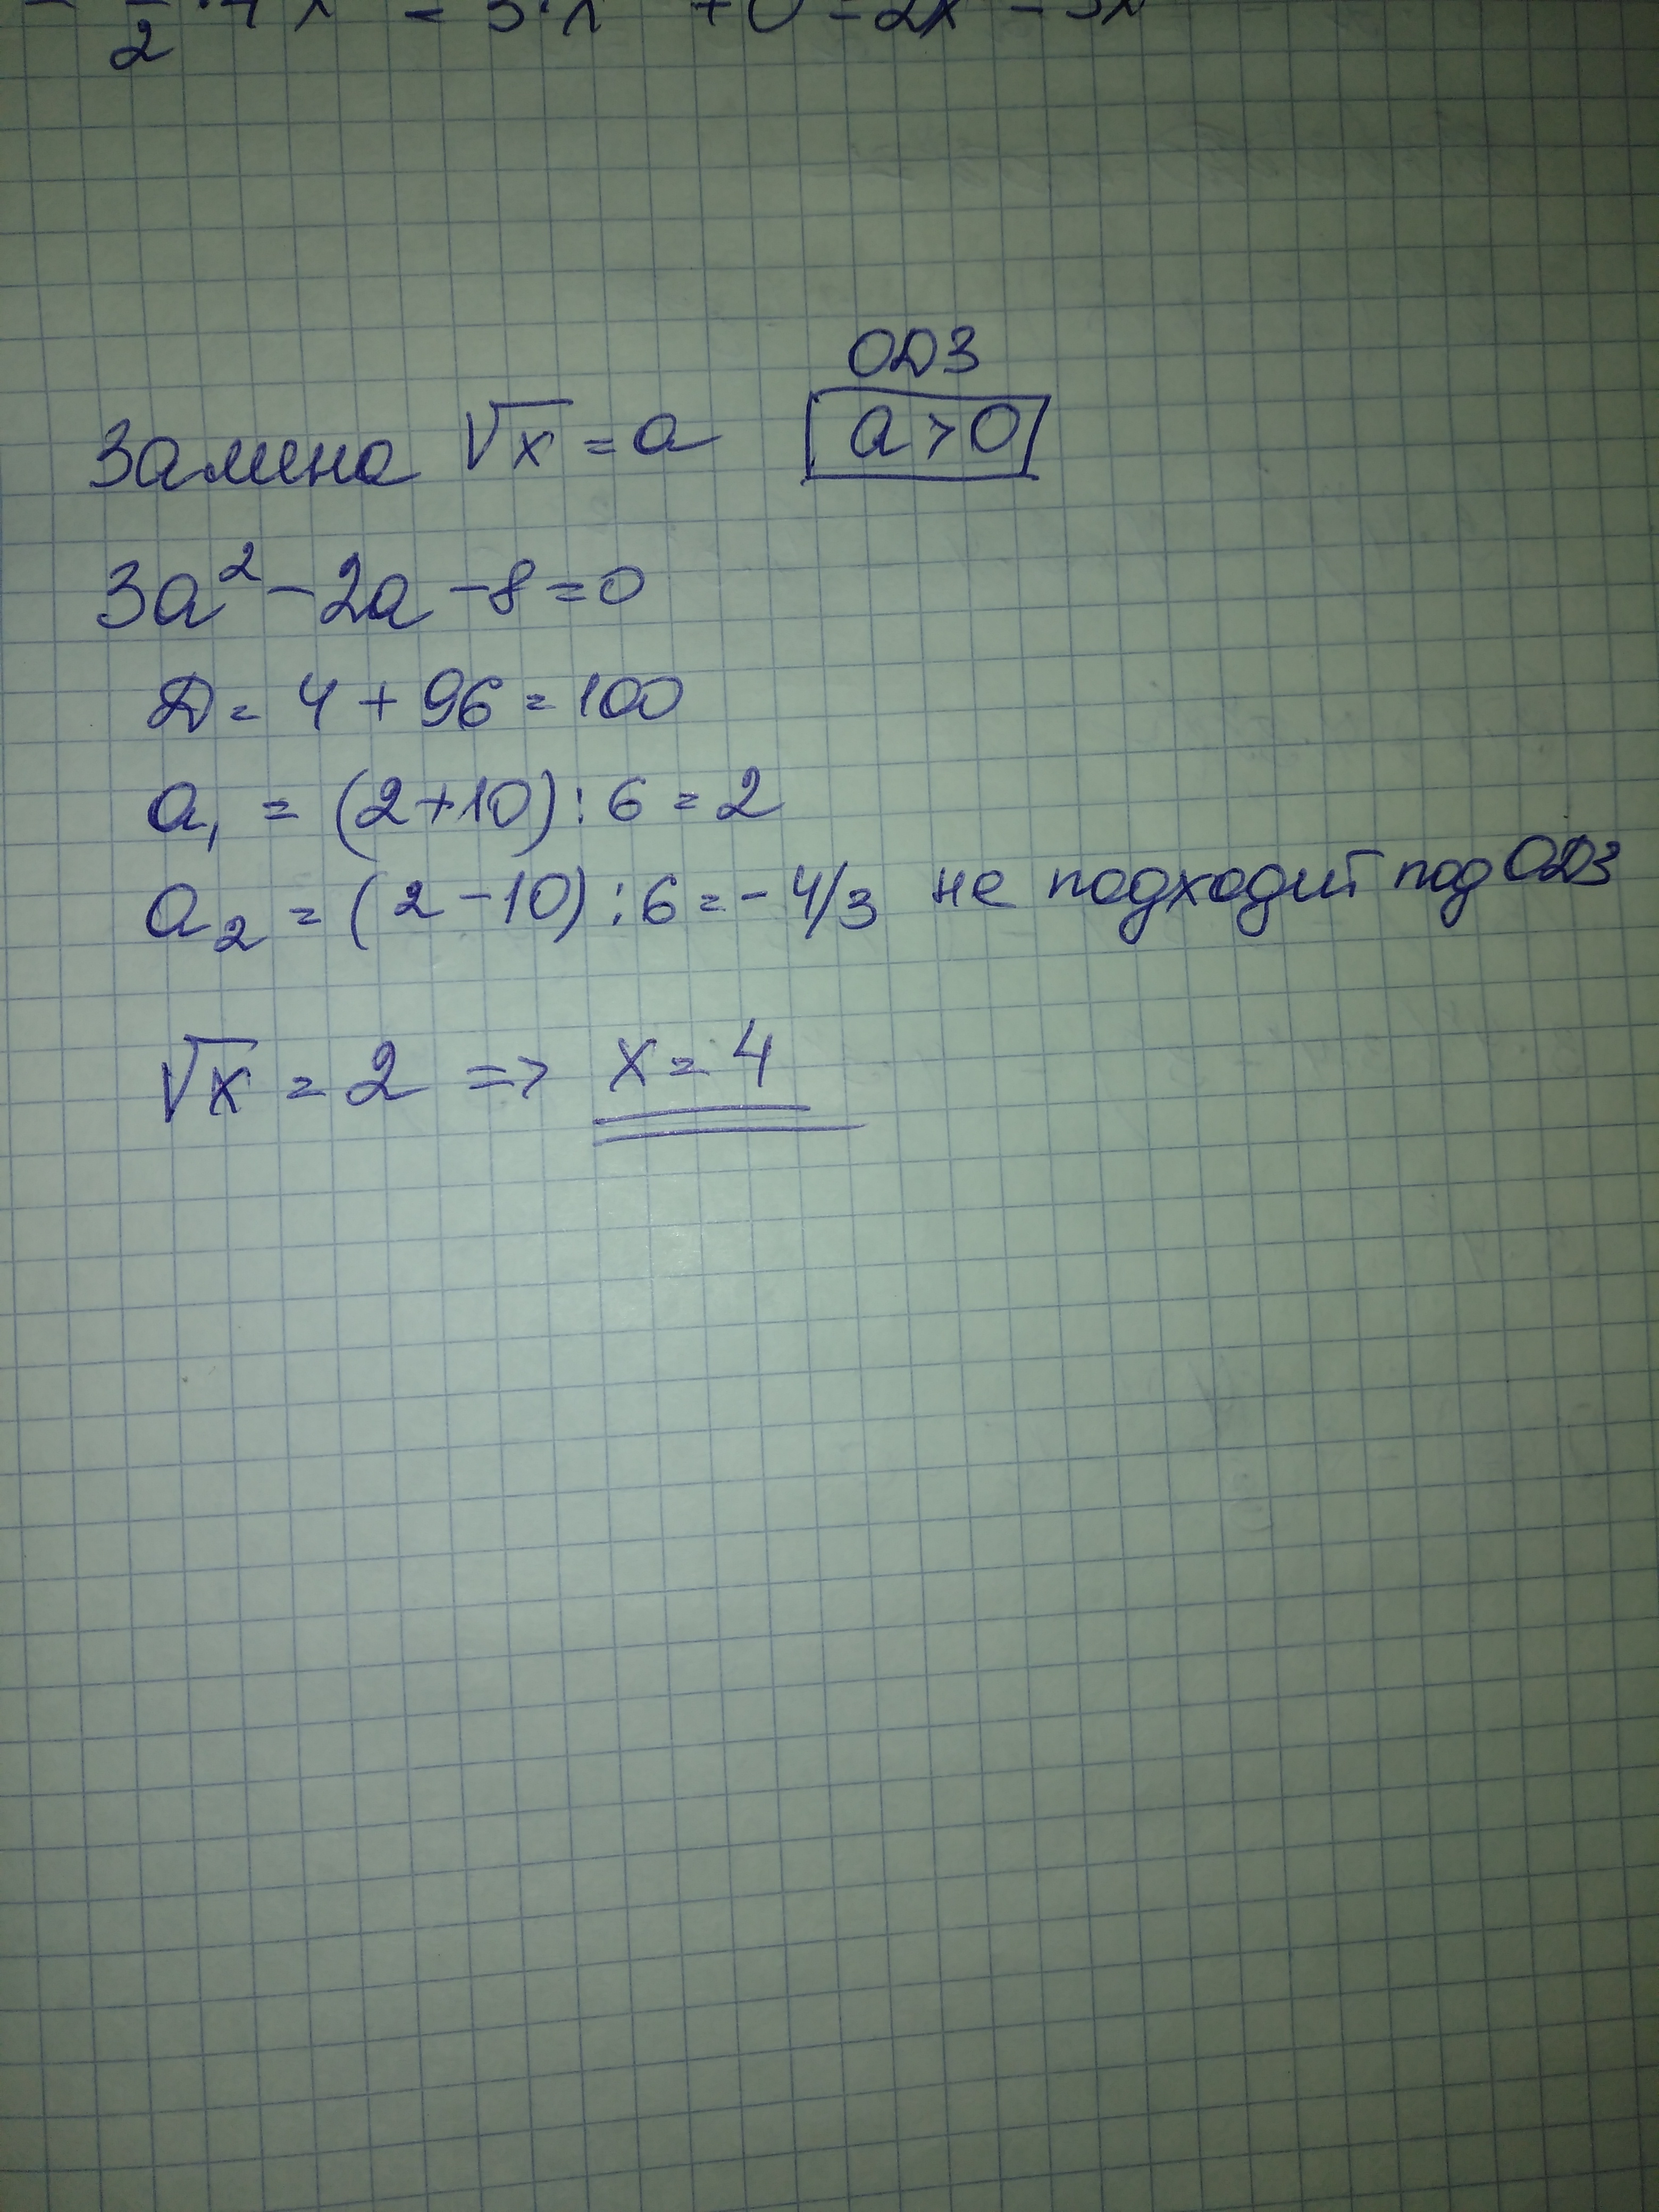 2
+0=2x
ОДЗ
Замена √x = a a>0
3a² - 2a - 8 = 0
Д = 4 + 96 = 100
a₁ = (2+10):6 = 2
a₂ = (2-10):6 = -4/3 не подходит под ОДЗ
√x = 2 => x = 4